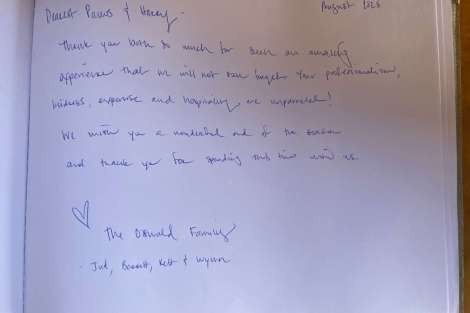 Dearest & Harvey.
August 2025
Thank you both so much for such an amazing
experience that we will not soon forget. Your professionalism,
kindness, expertise and hospitality are unparalleled!
We wish you a wonderful end of the season
and thank you for spending this time with us.
The Oswald Family
- Jud, Bennett, Kett & Wynn